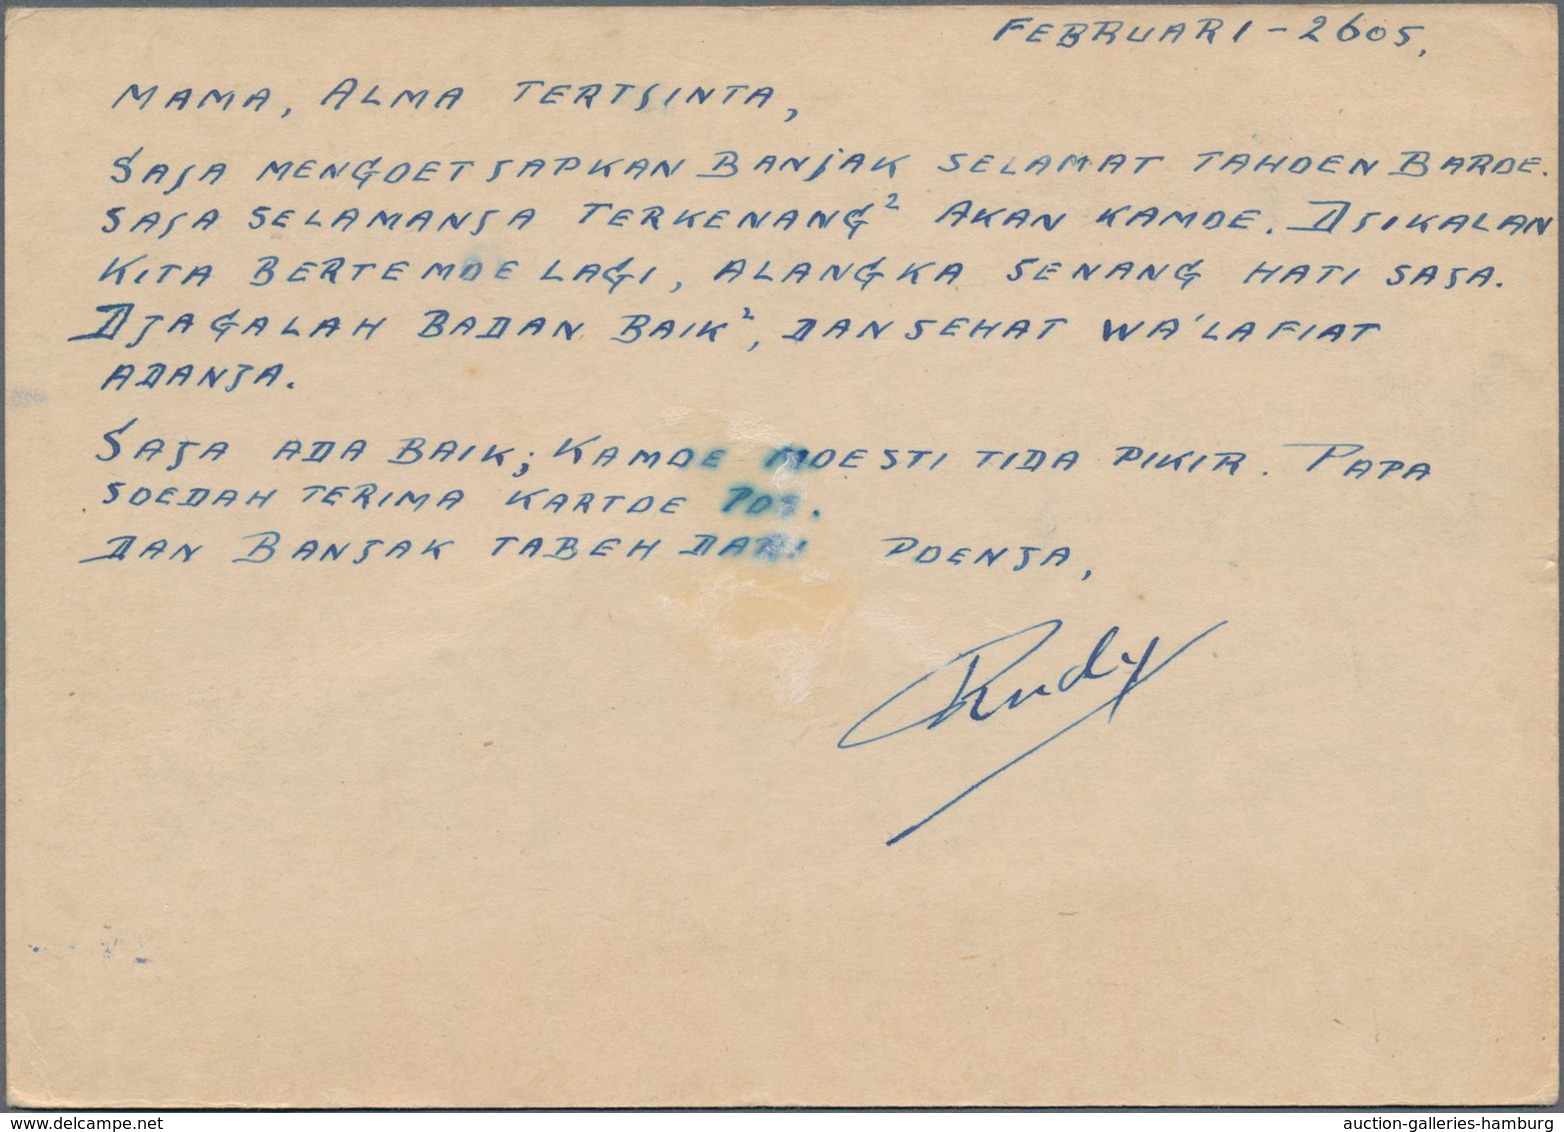 FEBRUARI - 2605.
MAMA, ALMA TERTJINTA,
SAJA MENGOETJAPKAN BANJAK SELAMAT TAHOEN BAROE.
SAJA SELAMANJA TERKENANG² AKAN KAMOE. DJIKALAN
KITA BERTEMOE LAGI, ALANGKA SENANG HATI SAJA.
DJAGALAH BADAN BAIK², DAN SEHAT WA'LAFIAT
ADANJA.
SAJA ADA BAIK; KAMOE MOESTI TIDA PIKIR. PAPA
SOEDAH TERIMA KARTOE POS.
DAN BANJAK TABEH DARI POENJA,
Rudy
auction-galleries-hamburg